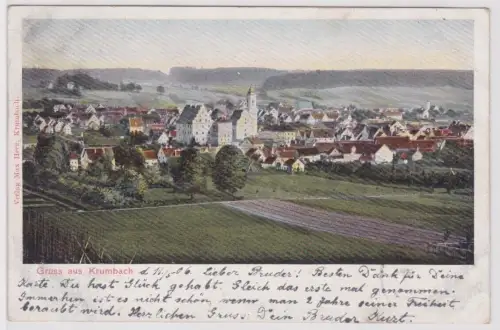 Verlag Max Herz, Krumbach.
Gruss aus Krumbach d. 11. 06. Lieber Bruder! Besten Dank für Deine
Karte. Du hast Glück gehabt. Gleich das erste mal genommen.
Immerhin ist es nicht schön, wenn man 2 Jahre seiner Freiheit
beraubt wird. Herzlichen Gruss Dein Bruder Kurt.